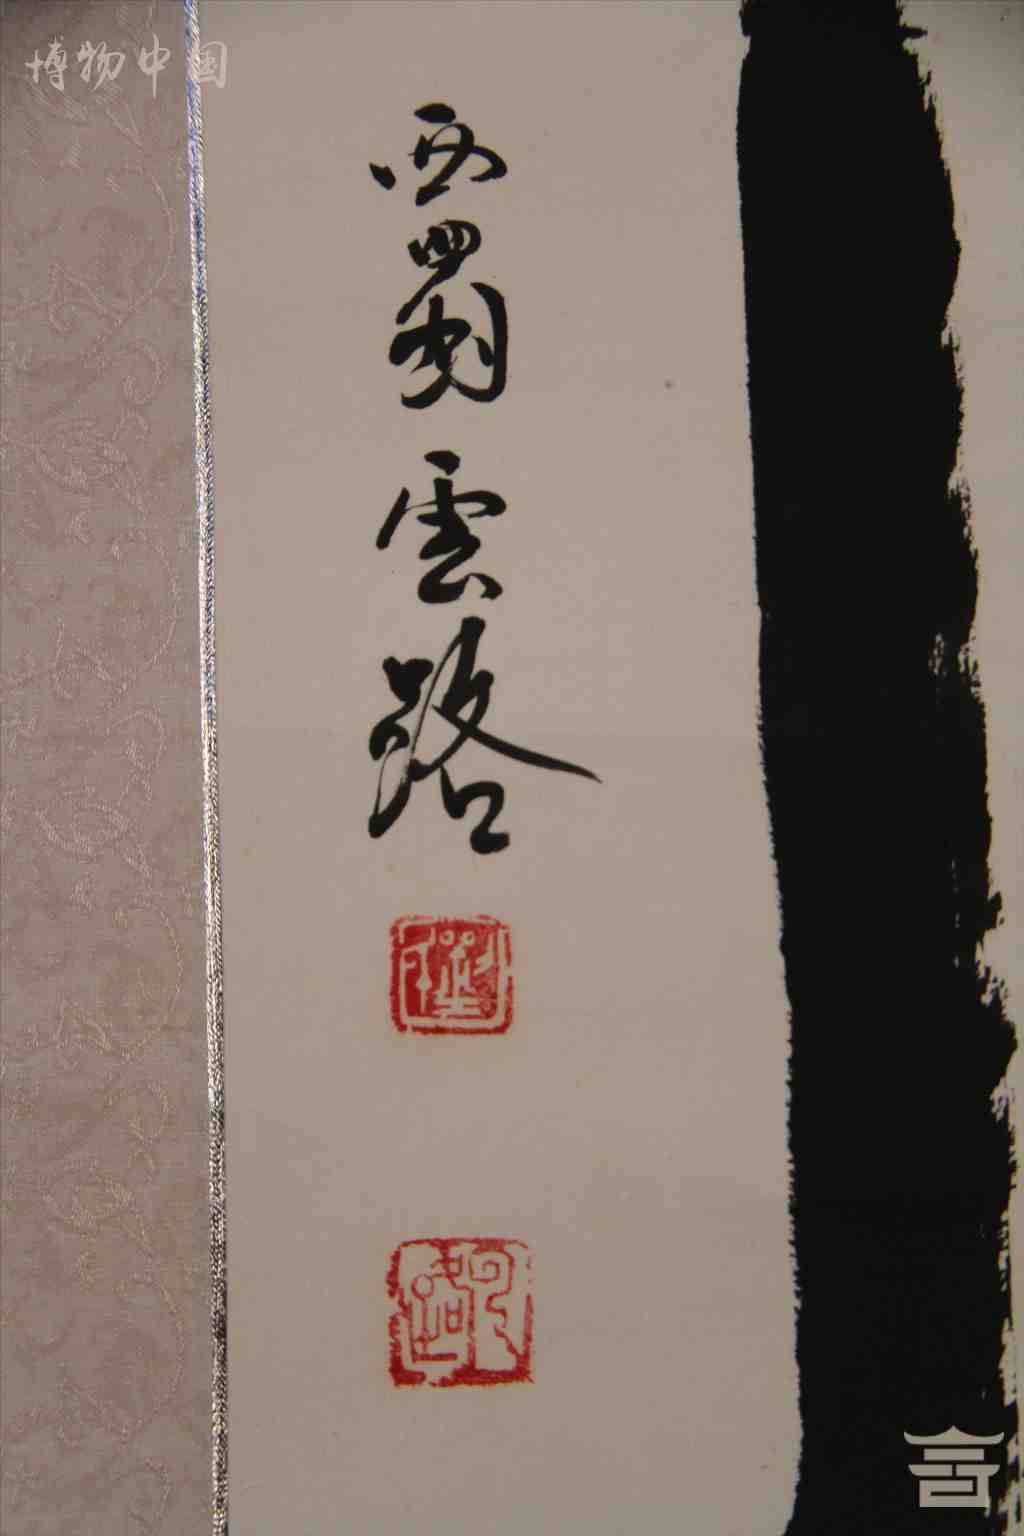 博物中国
西蜀雲路